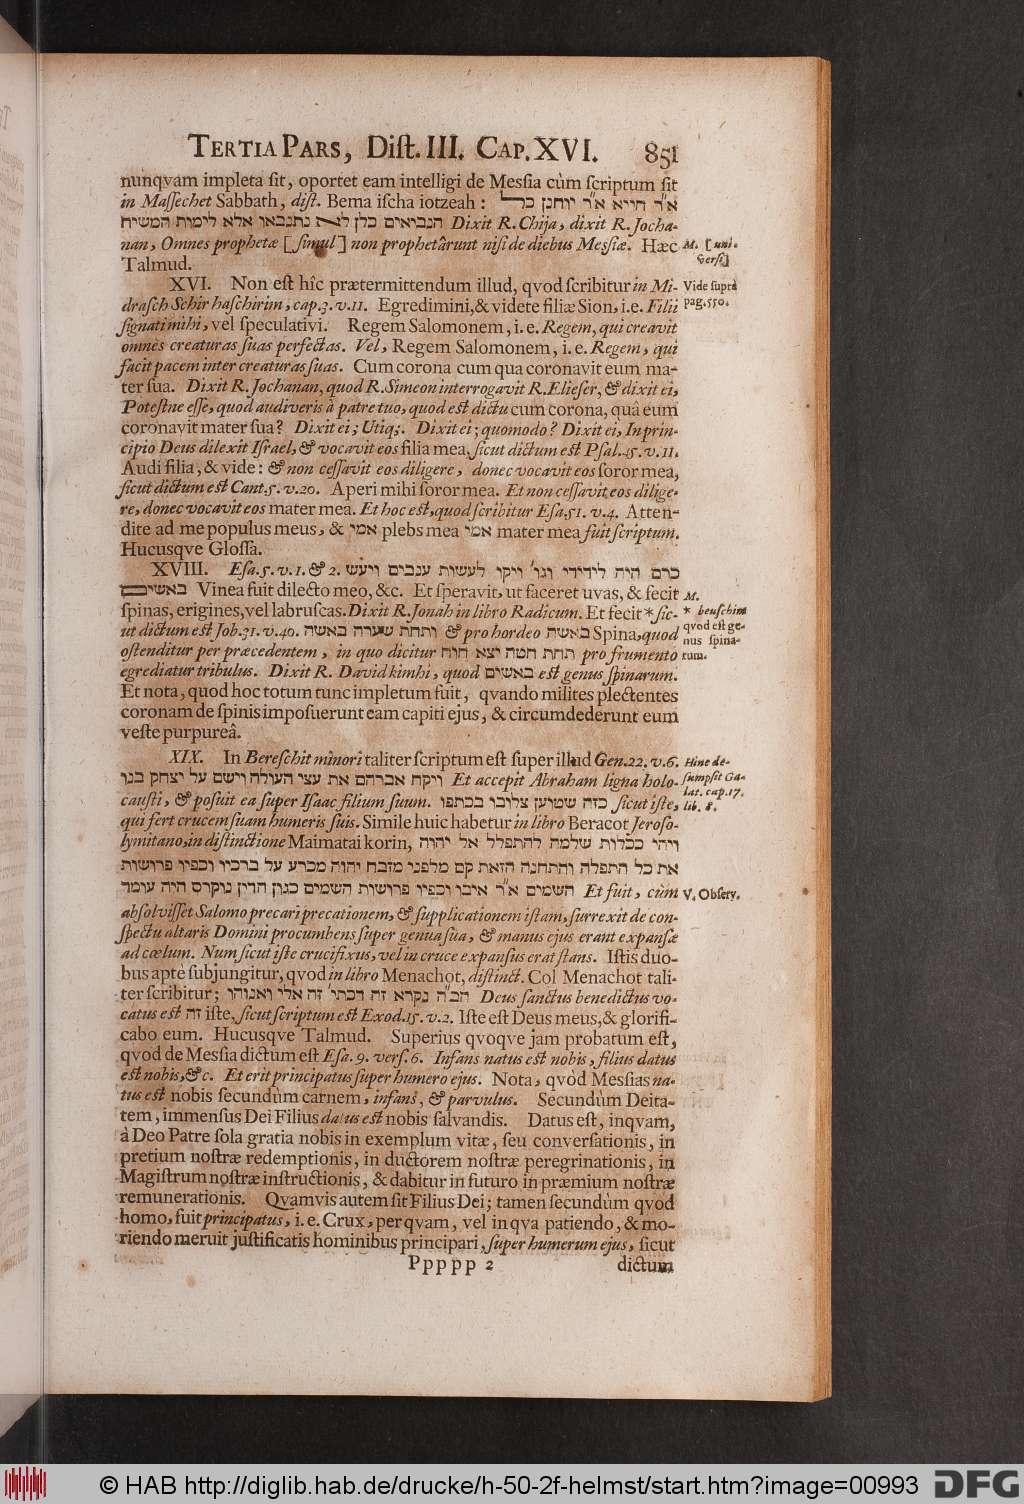 TERTIA PARS, Dist. III. CAP. XVI. 851
nunqvam impleta sit, oportet eam intelligi de Messia cùm scriptum sit
in Massechet Sabbath, dist. Bema ischa iotzeah: א"ר חייא א"ר יוחנן כל
הנביאים כלן לא נתנבאו אלא לימות המשיח Dixit R. Chija, dixit R. Jocha-
nan, Omnes prophetæ [simul] non prophetârunt nisi de diebus Messiæ. Hæc
M. [uni-
versi]
Talmud.
XVI. Non est hîc prætermittendum illud, qvod scribitur in Mi-
Vide suprà
pag. 550.
drasch Schir haschirim, cap. 3. v. 11. Egredimini, & videte filiæ Sion, i.e. Filii
signati mihi, vel speculativi. Regem Salomonem, i.e. Regem, qui creavit
omnes creaturas suas perfectas. Vel, Regem Salomonem, i.e. Regem, qui
facit pacem inter creaturas suas. Cum corona cum qua coronavit eum ma-
ter sua. Dixit R. Jochanan, quod R. Simeon interrogavit R. Elieser, & dixit ei,
Potestne esse, quod audiveris à patre tuo, quod est dictu cum corona, quâ eum
coronavit mater sua? Dixit ei; Utiq;. Dixit ei; quomodo? Dixit ei, In prin-
cipio Deus dilexit Israel, & vocavit eos filia mea, sicut dictum est Psal. 45. v. 11.
Audi filia, & vide: & non cessavit eos diligere, donec vocavit eos soror mea,
sicut dictum est Cant. 5. v. 20. Aperi mihi soror mea. Et non cessavit eos dilige-
re, donec vocavit eos mater mea. Et hoc est, quod scribitur Esa. 51. v. 4. Atten-
dite ad me populus meus, & אמי plebs mea אמי mater mea fuit scriptum.
Hucusqve Glossa.
XVIII. Esa. 5. v. 1. & 2. כרם היה לידידי וגו' ויקו לעשות ענבים ויעש
באשים Vinea fuit dilecto meo, &c. Et speravit, ut faceret uvas, & fecit
M.
spinas, erigines, vel labruscas. Dixit R. Jonah in libro Radicum. Et fecit * sic-
* beuschim
qvod est ge-
nus spina-
rum.
ut dictum est Job. 31. v. 40. ותחת שערה באשה & pro hordeo באשת Spina, quod
ostenditur per præcedentem, in quo dicitur תחת חטה יצא חוח pro frumento
egrediatur tribulus. Dixit R. David kimhi, quod באשים est genus spinarum.
Et nota, quod hoc totum tunc impletum fuit, qvando milites plectentes
coronam de spinis imposuerunt eam capiti ejus, & circumdederunt eum
veste purpureâ.
XIX. In Bereschit minori taliter scriptum est super illud Gen. 22. v. 6.
Hinc de-
sumpsit Ga-
lat. cap. 17.
lib. 8.
ויקח אברהם את עצי העולה וישם על יצחק בנו Et accepit Abraham ligna holo-
causti, & posuit ea super Isaac filium suum. כזה שטוען צלובו בכתפו sicut iste,
qui fert crucem suam humeris suis. Simile huic habetur in libro Beracot Jeroso-
lymitano, in distinctione Maimatai korin, ויהי ככלות שלמה להתפלל אל יהוה
את כל התפלה והתחנה הזאת קם מלפני מזבח יהוה מכרע על ברכיו וכפיו פרושות
השמים א"ר איבו וכפיו פרושות השמים כגון הדין נוקרס היה עומד Et fuit, cùm
V. Observ.
absolvisset Salomo precari precationem, & supplicationem istam, surrexit de con-
spectu altaris Domini procumbens super genua sua, & manus ejus erant expansæ
ad cœlum. Num sicut iste crucifixus, vel in cruce expansus erat stans. Istis duo-
bus aptè subjungitur, qvod in libro Menachot, distinct. Col Menachot tali-
ter scribitur; הב"ה נקרא זה דכתי' זה אלי ואנוהו Deus sanctus benedictus vo-
catus est זה iste, sicut scriptum est Exod. 15. v. 2. Iste est Deus meus, & glorifi-
cabo eum. Hucusqve Talmud. Superius qvoqve jam probatum est,
qvod de Messia dictum est Esa. 9. vers. 6. Infans natus est nobis, filius datus
est nobis, &c. Et erit principatus super humero ejus. Nota, qvòd Messias na-
tus est nobis secundùm carnem, infans, & parvulus. Secundùm Deita-
tem, immensus Dei Filius datus est nobis salvandis. Datus est, inqvam,
à Deo Patre sola gratia nobis in exemplum vitæ, seu conversationis, in
pretium nostræ redemptionis, in ductorem nostræ peregrinationis, in
Magistrum nostræ instructionis, & dabitur in futuro in præmium nostræ
remunerationis. Qvamvis autem sit Filius Dei; tamen secundùm qvod
homo, fuit principatus, i.e. Crux, per qvam, vel in qva patiendo, & mo-
riendo meruit justificatis hominibus principari, super humerum ejus, sicut
Ppppp 2 dictum
© HAB http://diglib.hab.de/drucke/h-50-2f-helmst/start.htm?image=00993 DFG